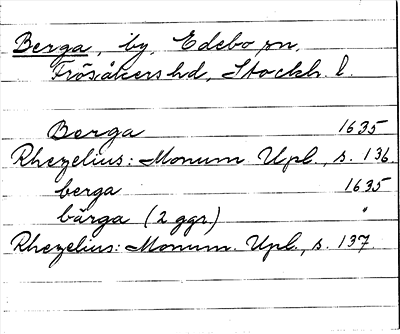 Berga, by, Edebo sn,
Frösåkers hd, Stockh. l.
Berga 1635
Rhezelius: Monum. Upl., s. 136.
berga 1635
bärga (2 ggr) "
Rhezelius: Monum. Upl., s. 137.